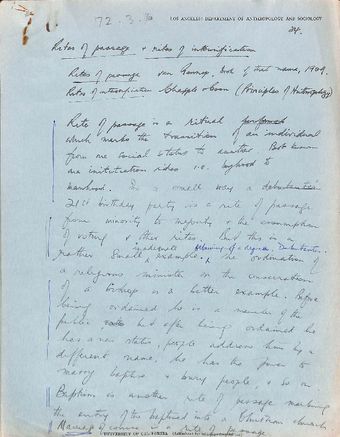 LOS ANGELES DEPARTMENT OF ANTHROPOLOGY AND SOCIOLOGY
72.3.
Rites of passage & rites of intensification
Rites of passage van Gennep, book of that name, 1909.
Rites of intensification Chapple & Coon (Principles of Anthropology)
Rite of passage is a ritual performed
which marks the transition of an individual
from one social status to another. Best known
are initiation rites i.e. boyhood to
manhood. In a small way a debutante's
21st birthday party is a rite of passage
from minority to majority & the assumption
of voting & other rites, but this is a
rather small example. The ordination of
a religious minister or the consecration
of a bishop is a better example. Before
being ordained he is a member of the
public but after being ordained he
has a new status, people address him by a
different name, he has the power to
marry baptise & bury people, & so on.
Baptism is another rite of passage marking
the entry of the baptised into a Christian church.
Marriage of course is a rite of passage
UNIVERSITY OF CALIFORNIA